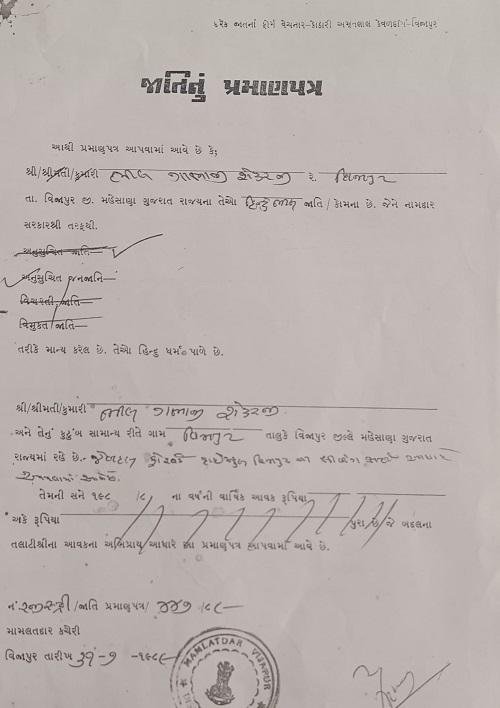 દરેક જાતનાં ફોર્મ વેચનાર-કોઠારી અમૃતલાલ કેવળદાસ-વિજાપુર
જાતિનું પ્રમાણપત્ર
આથી પ્રમાણપત્ર આપવામાં આવે છે કે;
શ્રી/શ્રીમતી/કુમારી ભીલ ગાભાજી શંકરજી રે. વિજાપુર
તા. વિજાપુર જી. મહેસાણા ગુજરાત રાજ્યના તેઓ હિન્દુ ભીલ જાતિ / કોમના છે. જેને નામદાર
સરકારશ્રી તરફથી.
અનુસુચિત જાતિ—
અનુસુચિત જનજાતિ—
વિચરતી જાતિ—
વિમુક્ત જાતિ—
તરીકે માન્ય કરેલ છે. તેઓ હિન્દુ ધર્મ પાળે છે.
શ્રી/શ્રીમતી/કુમારી ભીલ ગાભાજી શંકરજી
અને તેનું કુટુંબ સામાન્ય રીતે ગામ વિજાપુર તાલુકે વિજાપુર જીલ્લે મહેસાણા ગુજરાત
રાજ્યમાં રહે છે.
તેમની સને ૧૯૮ /૮ ના વર્ષની વાર્ષિક આવક રૂપિયા
અંકે રૂપિયા પુરા છે જે બદલના
તલાટીશ્રીના આવકના અભિપ્રાય આધારે આ પ્રમાણપત્ર આપવામાં આવે છે.
નં રજીસ્ટ્રી /જાતિ પ્રમાણપત્ર/ /૮૮
મામલતદાર કચેરી
વિજાપુર તારીખ
MAMLATDAR VIJAPUR